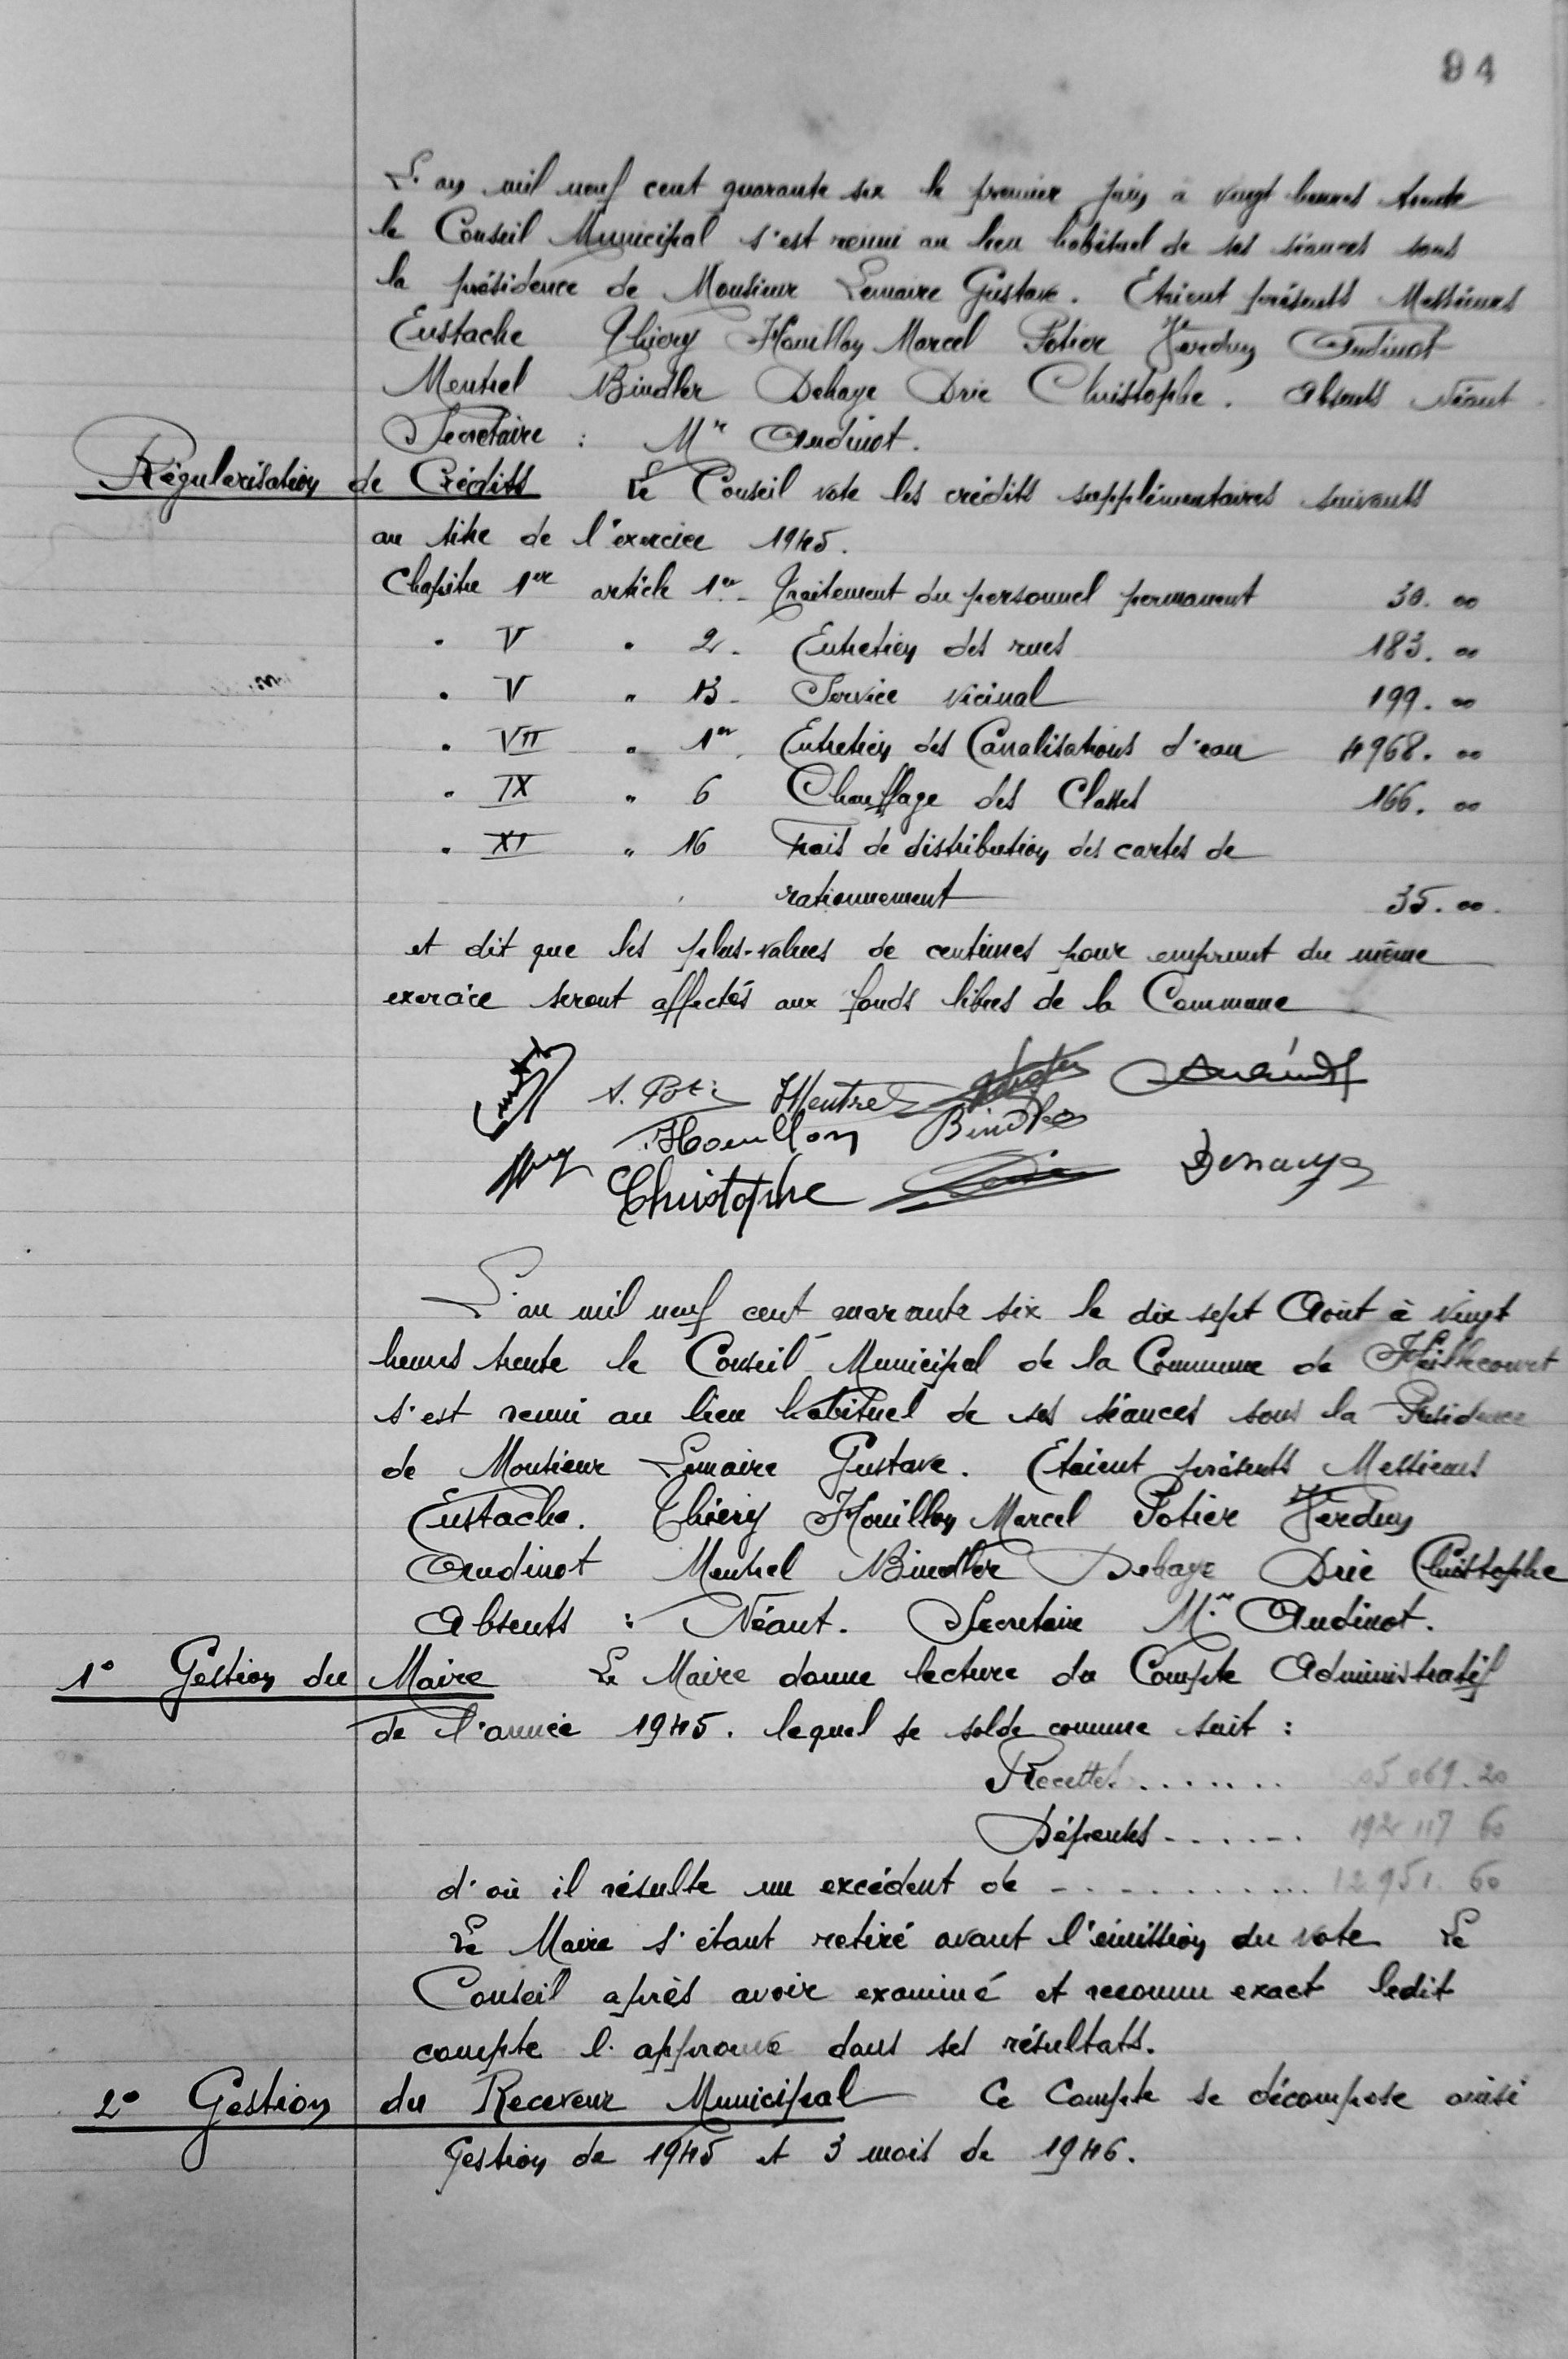 94
L'an mil neuf cent quarante six le premier juin à vingt heures trente
le Conseil Municipal s'est reuni au lieu habituel de ses séances sous
la présidence de Monsieur Lemaire Gustave. Etaient présents Messieurs
Eustache Thiery Houillon Marcel Potier Verdun Audinot
Mentrel Bindler Dehaye Drie Christophe. Absents Néant.
Secretaire : Mr Audinot.
Régularisation de Crédits Le Conseil vote les crédits supplémentaires suivants
au titre de l'exercice 1945.
Chapitre 1er article 1er - Traitement du personnel permanent 30. 00
" V " 2 - Entretien des rues 183. 00
" V " 13 - Service vicinal 199. 00
" VII " 1er Entretien des Canalisations d'eau 4968. 00
" IX " 6 Chauffage des Classes 166. 00
" XI " 16 Frais de distribution des cartes de
rationnement 35. 00.
et dit que les plus-values de centimes pour emprunt du même
exercice seront affectés aux fonds libres de la Commune
A. Potier Mentrel Audinot
Houillon Bindler
Christophe Drie Dehaye
L'an mil neuf cent quarante six le dix sept Août à vingt
heures trente le Conseil Municipal de la Commune de Heillecourt
s'est reuni au lieu habituel de ses séances sous la Présidence
de Monsieur Lemaire Gustave. Etaient présents Messieurs
Eustache. Thiery Houillon Marcel Potier Verdun
Audinot Mentrel Bindler Dehaye Drie Christophe
Absents : Néant. Secretaire Mr Audinot.
1° Gestion du Maire Le Maire donne lecture du Compte Administratif
de l'année 1945. lequel se solde comme suit :
Recettes ....... 05 069. 20
Dépenses ...... 192 117 60
d'où il résulte un excédent de .......... 12 951. 60
Le Maire s'étant retiré avant l'émission du vote Le
Conseil après avoir examiné et reconnu exact ledit
compte l'approuve dans ses résultats.
2° Gestion du Receveur Municipal Ce Compte se décompose ainsi
Gestion de 1945 et 3 mois de 1946.